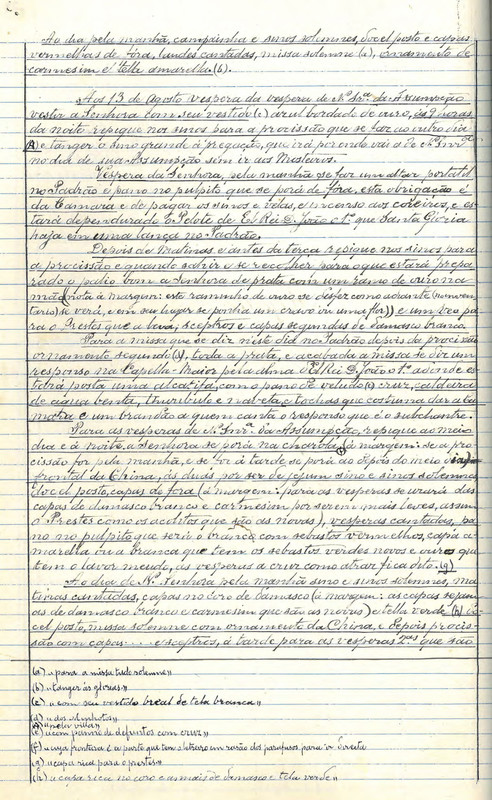 Ao dia pela manhã, campainha e sinos solemnes, docel posto e capas
vermelhas de fóra, laudes cantadas, missa solemne (a), ornamento de
carmesim e tella amarella. (b).
Aos 13 de Agosto vespora da vespera de N.ª Sr.ª da Assumpção
vestir a Senhora com seu vestido (c) azul bordado de ouro, ás 9 horas
da noite repique nos sinos para a procissão que se faz ao outro dia
e tanger o sino grande á prégação, que irá pondo vais de N. Snrª
no dia de sua Assumpção sem ir aos Mosteiros.
Vespera da Senhora, pela manhã se faz um altar portatil
no Padrão e pano no pulpito que se porá de fóra, esta obrigação é
da Camara e de pagar os sinos e vélas, e incenso aos coreiros, e es-
tará dependurado o Pelote de El Rei D. João 1º que Santa Gloria
haja em uma lança no Padrão.
Depois de Matinas e antes da terça repique nos sinos para
a procissão e quando sahir e se recolher para o que estará prepa-
rado o palio com a Senhora de prata com um ramo de ouro na
mão (nota á margem: este raminho de ouro se desfez como adiante (no inven-
tario) se verá, e em seu lugar se ponha um cravo ou uma flor)) e um veo pa-
ra o Prestes que a leva; sceptros e capas segundas de damasco branco.
Para a missa que se diz neste dia no Padrão depois da procissão
ornamento segundo (d), toda a prata, e acabada a missa se diz um
responso na Capella-Maior pela alma d'El Rei D. João 1º aonde es-
tará posta uma alcatifa, com o pano de veludo (e) cruz, caldeira
de agua benta, thuribulo e naveta, e tochas que costuma dar a Ca-
mara e um brandão a quem canta o responso que é o subchantre.
Para as vesperas de N. Snrª da Assumpção, repique ao meio
dia e á noite, a Senhora se porá na charola (á margem: se a pro-
cissão for pela manhã, e se for á tarde se porá ao depois do meio dia)
frontal da China, ás duas por ser de jejum sino e sinos solemnes
docel posto, capas de fóra (á margem: para as vesperas se usará das
capas de damasco branco e carmesim por serem mais leves, assim
o Prestes como os acolitos que são as novas), vesperas cantadas, pa-
no no pulpito que será o branco com sebastos vermelhos, capa a-
marella ou a branca que tem os sebastos verdes novos e ouro que
tem o lavor meudo, ás vesperas a cruz como atraz fica dito. (g)
Ao dia de N. Senhora pela manhã sino e sinos solemnes, ma-
tinas cantadas, capas no coro de damasco (á margem: as capas sejam
as de damasco branco e carmesim que são as novas) e tella verde (h) do-
cel posto, missa solemne com ornamento da China, e depois procis-
são com capas .... e sceptros, á tarde para as vesperas 2.ªˢ que são
(a) «para a missa tudo solemne»
(b) «tanger ás glorias»
(c) «com seu vestido breal de tela branca»
(d) «dos Minhotos»
«pela villa»
(e) «com panno de defuntos com cruz»
(f) «cuja fronteira é a parte que tem o letreiro em razão dos parafusos para ir direita
(g) «capa rica para o prestes»
(h) «capa rica no coro e as mais de damasco e tela verde»